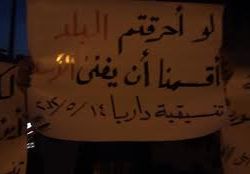 لو أحرقتم البلد
أقسمنا أن يفنى الأسد
تنسيقية داريا ١٤/٥/٢٠١٢